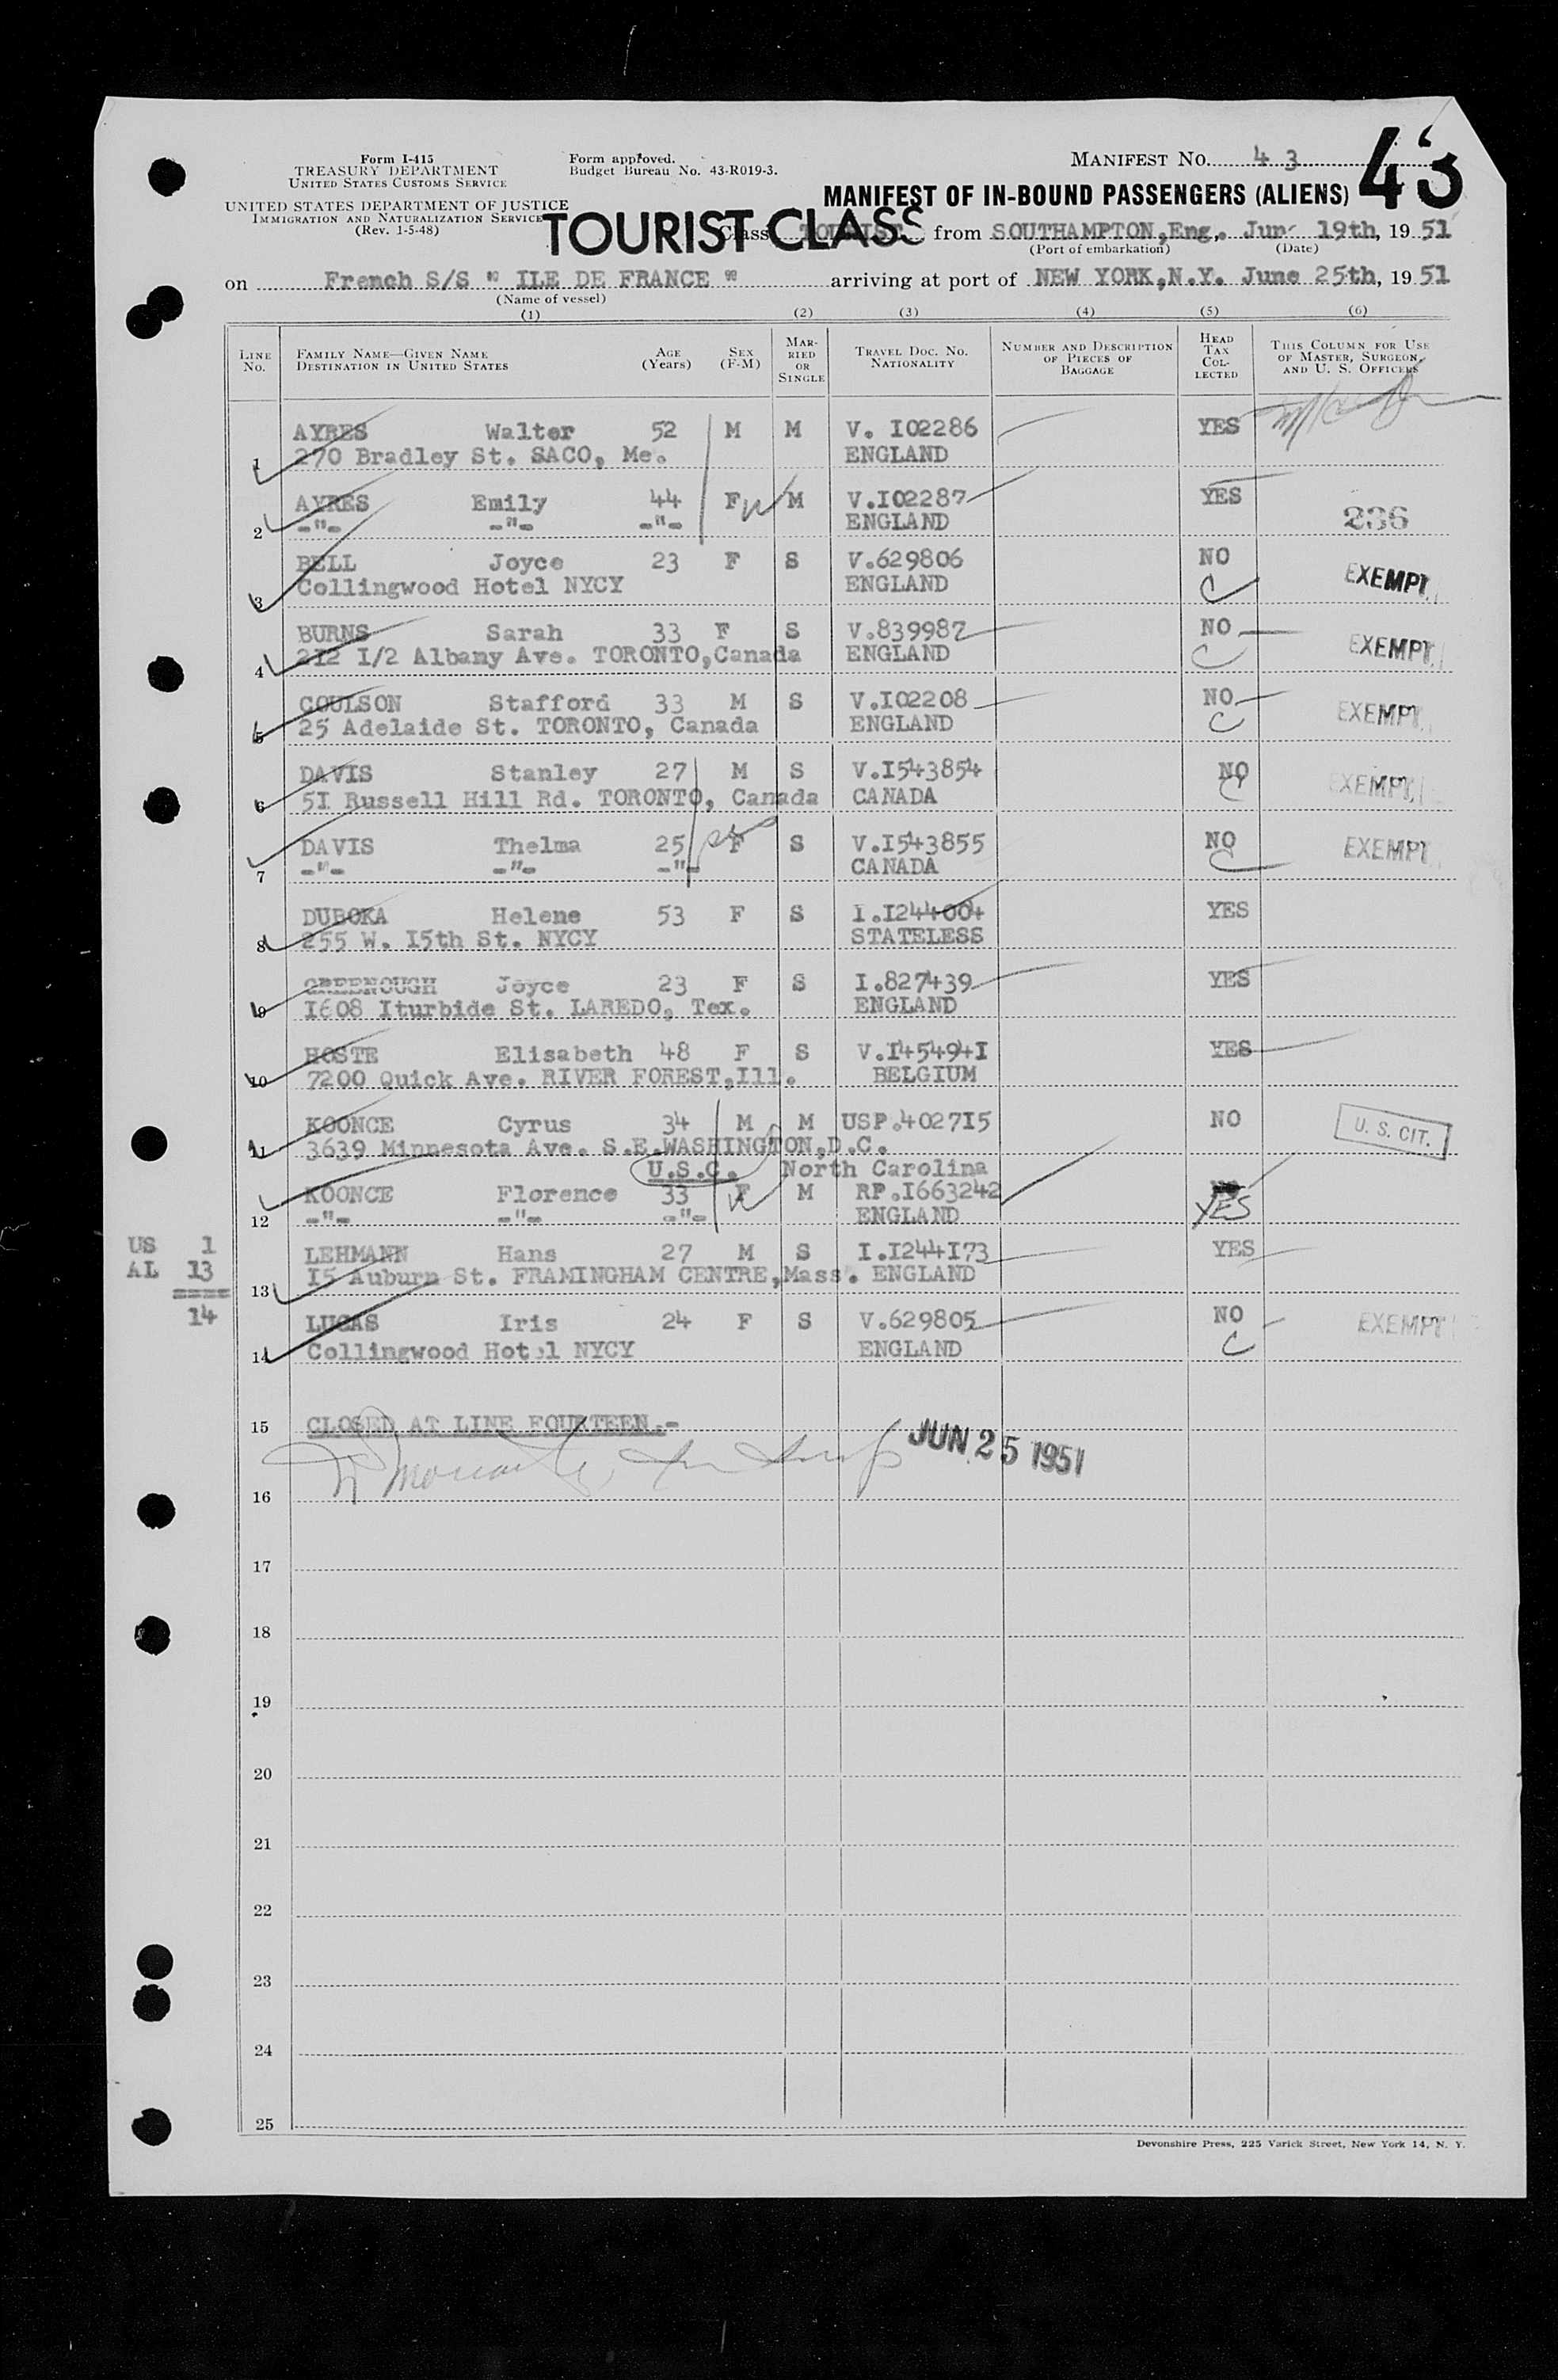 Form I-415
TREASURY DEPARTMENT
UNITED STATES CUSTOMS SERVICE
UNITED STATES DEPARTMENT OF JUSTICE
IMMIGRATION AND NATURALIZATION SERVICE
(Rev. 1-5-48)
Form approved.
Budget Bureau No. 43-R019-3.
MANIFEST No. 43
43
MANIFEST OF IN-BOUND PASSENGERS (ALIENS)
TOURIST CLASS
Class TOURIST from SOUTHAMPTON,Eng, June 19th, 19 51
(Port of embarkation) (Date)
on French S/S " ILE DE FRANCE " arriving at port of NEW YORK,N.Y. June 25th, 19 51
(Name of vessel)
(1) (2) (3) (4) (5) (6)
LINE No. FAMILY NAME—GIVEN NAME DESTINATION IN UNITED STATES AGE (Years) SEX (F-M) MARRIED OR SINGLE TRAVEL DOC. NO. NATIONALITY NUMBER AND DESCRIPTION OF PIECES OF BAGGAGE HEAD TAX COLLECTED THIS COLUMN FOR USE OF MASTER, SURGEON, AND U. S. OFFICERS
AYRES Walter 52 M M V. I02286 YES
1 270 Bradley St. SACO, Me. ENGLAND
AYRES Emily 44 F M V.I02287 YES
2 -"- -"- -"- ENGLAND 236
BELL Joyce 23 F S V.629806 NO
3 Collingwood Hotel NYCY ENGLAND C EXEMPT
BURNS Sarah 33 F S V.839987 NO
4 212 I/2 Albany Ave. TORONTO,Canada ENGLAND C EXEMPT
COULSON Stafford 33 M S V.I02208 NO
5 25 Adelaide St. TORONTO, Canada ENGLAND C EXEMPT
DAVIS Stanley 27 M S V.I543854 NO
6 5I Russell Hill Rd. TORONTO, Canada CANADA C EXEMPT
DAVIS Thelma 25 F S V.I543855 NO
7 -"- -"- -"- CANADA C EXEMPT
DUBOKA Helene 53 F S I.I244004 YES
8 255 W. I5th St. NYCY STATELESS
GREENOUGH Joyce 23 F S I.827439 YES
9 I608 Iturbide St. LAREDO, Tex. ENGLAND
HOSTE Elisabeth 48 F S V.I45494I YES
10 7200 Quick Ave. RIVER FOREST,Ill. BELGIUM
KOONCE Cyrus 34 M M USP.4027I5 NO U. S. CIT.
11 3639 Minnesota Ave. S.E.WASHINGTON,D.C.
U.S.C. North Carolina
KOONCE Florence 33 F M RP.I663242
12 -"- -"- -"- ENGLAND YES
US 1
LEHMANN Hans 27 M S I.I244I73 YES
AL 13
13 I5 Auburn St. FRAMINGHAM CENTRE,Mass. ENGLAND
====
14
LUCAS Iris 24 F S V.629805 NO EXEMPT
14 Collingwood Hotel NYCY ENGLAND C
15 CLOSED AT LINE FOURTEEN.-
JUN 25 1951
16
17
18
19
20
21
22
23
24
25
Devonshire Press, 225 Varick Street, New York 14, N. Y.